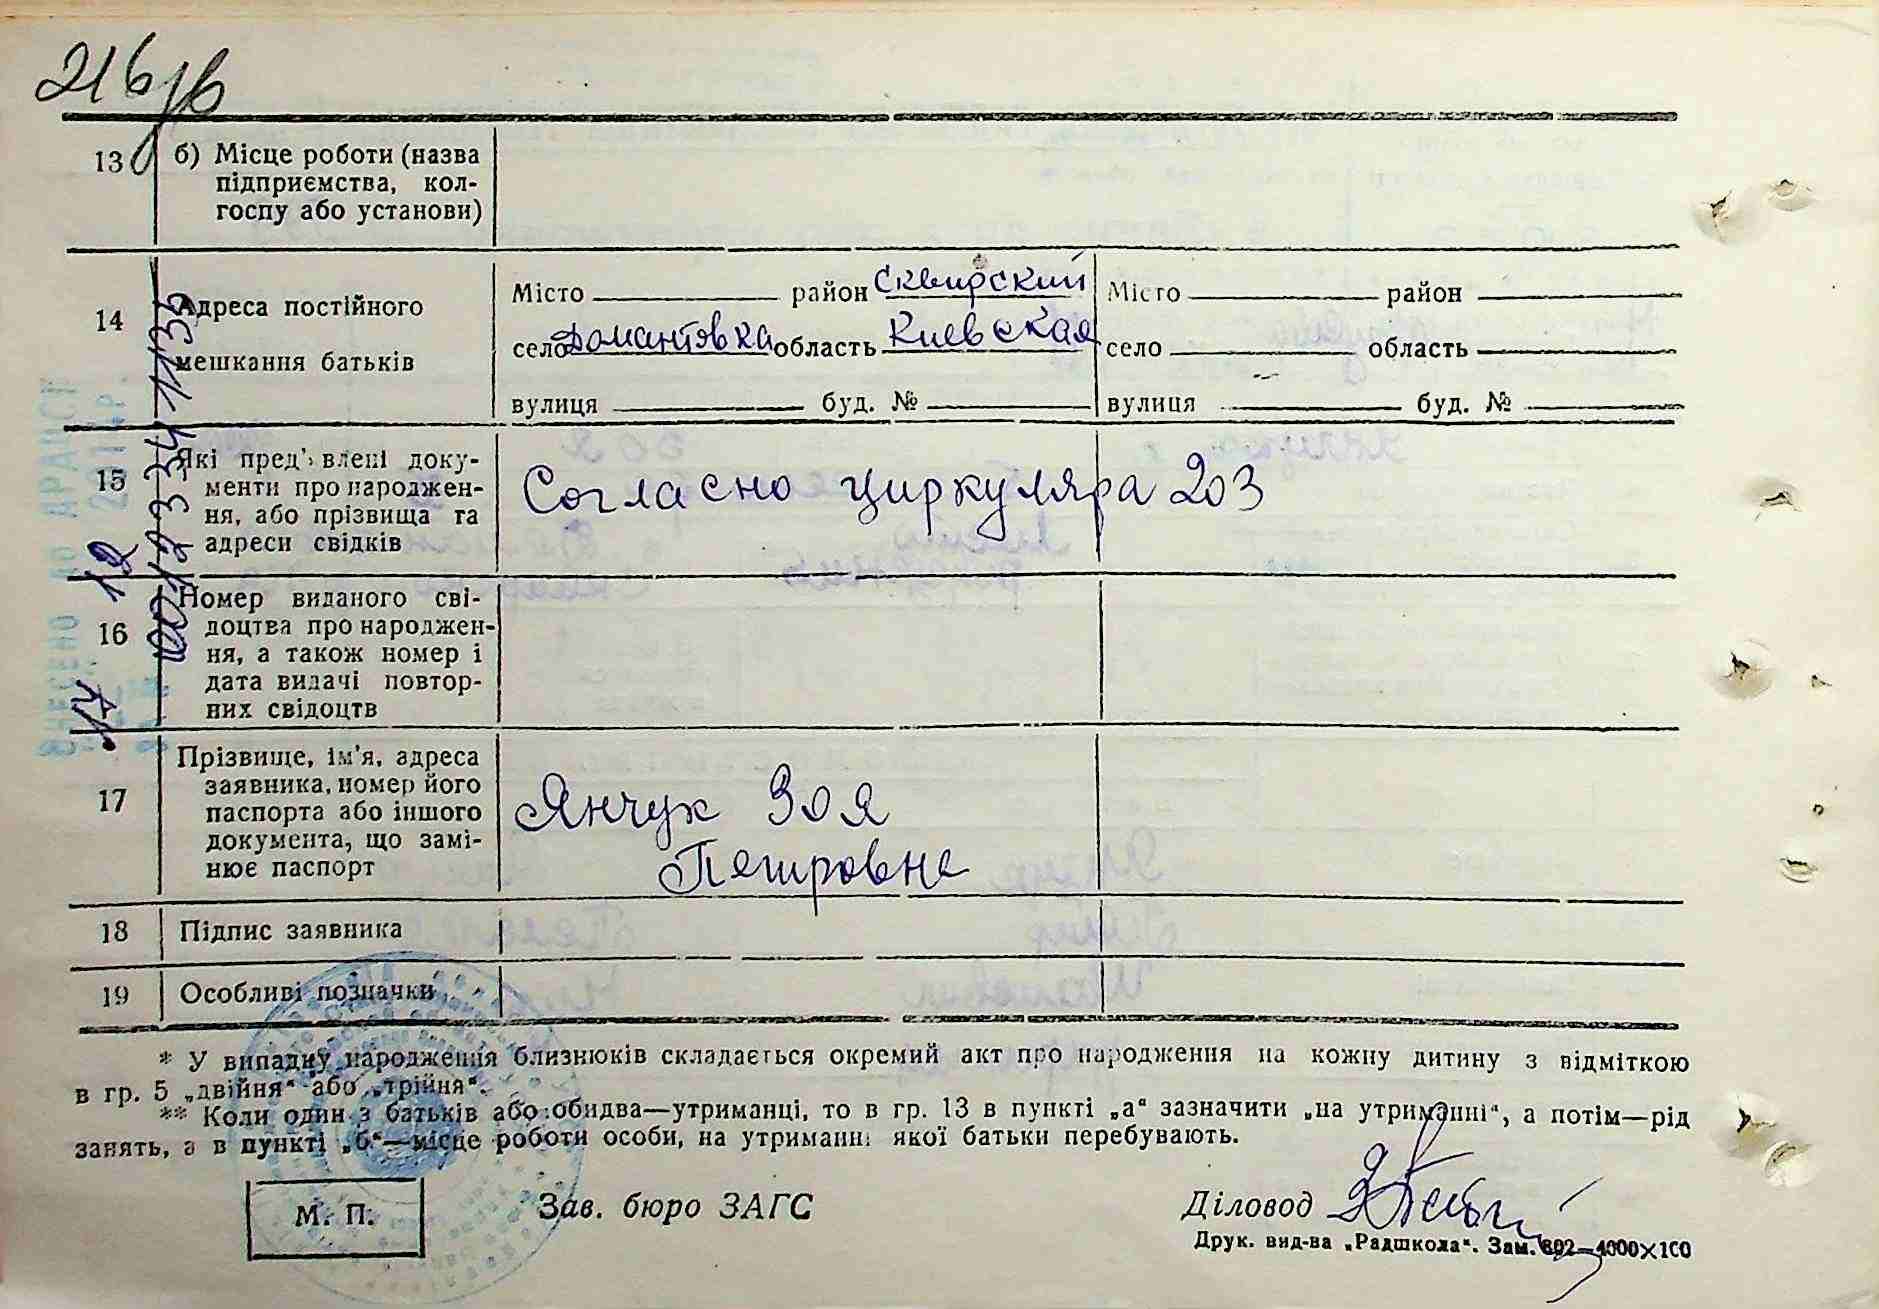 216
13 б) Місце роботи (назва
підприємства, кол-
госпу або установи)
14 Адреса постійного
мешкання батьків
Місто район Сквирский
село Домантовка область Киевская
вулиця буд. №
Місто район
село область
вулиця буд. №
15 Які пред'явлені доку-
менти про народжен-
ня, або прізвища та
адреси свідків
Согласно циркуляра 203
16 Номер виданого сві-
доцтва про народжен-
ня, а також номер і
дата видачі повтор-
них свідоцтв
17 Прізвище, ім'я, адреса
заявника, номер його
паспорта або іншого
документа, що замі-
нює паспорт
Янчук Зоя
Петровна
18 Підпис заявника
19 Особливі позначки
* У випадку народження близнюків складається окремий акт про народження на кожну дитину з відміткою
в гр. 5 „двійня“ або „трійня“.
** Коли один з батьків або обидва—утриманці, то в гр. 13 в пункті „а“ зазначити „на утриманні“, а потім—рід
занять, а в пункті „б“—місце роботи особи, на утриманні якої батьки перебувають.
М. П.
Зав. бюро ЗАГС
Діловод
Друк. вид-ва „Радшкола“. Зам. 802—4000×100